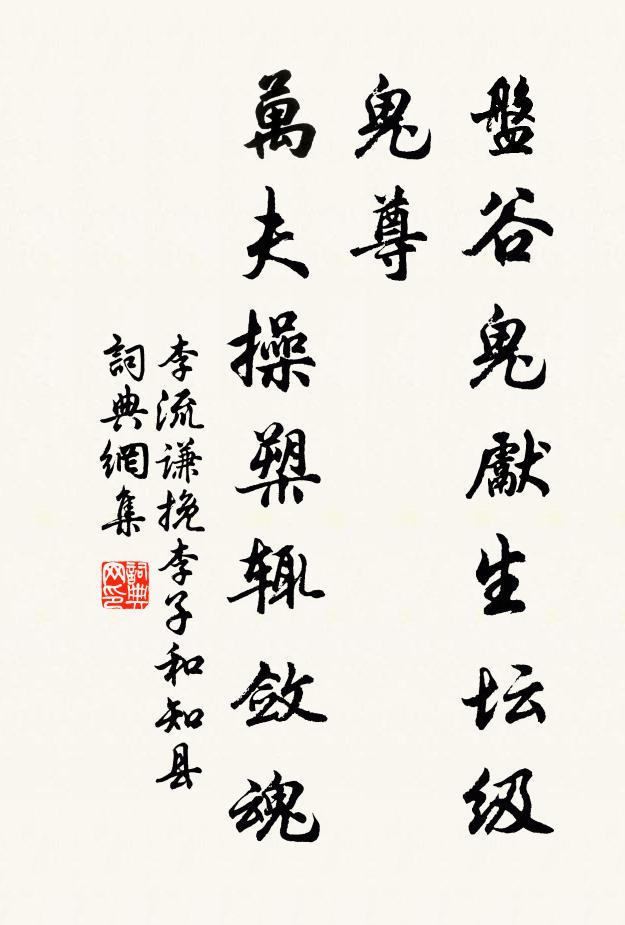 盤谷鬼獻生坛级
鬼尊
萬夫操槊辄斂魂
李流谦挽李子和知县
詞典網集
詞典网印